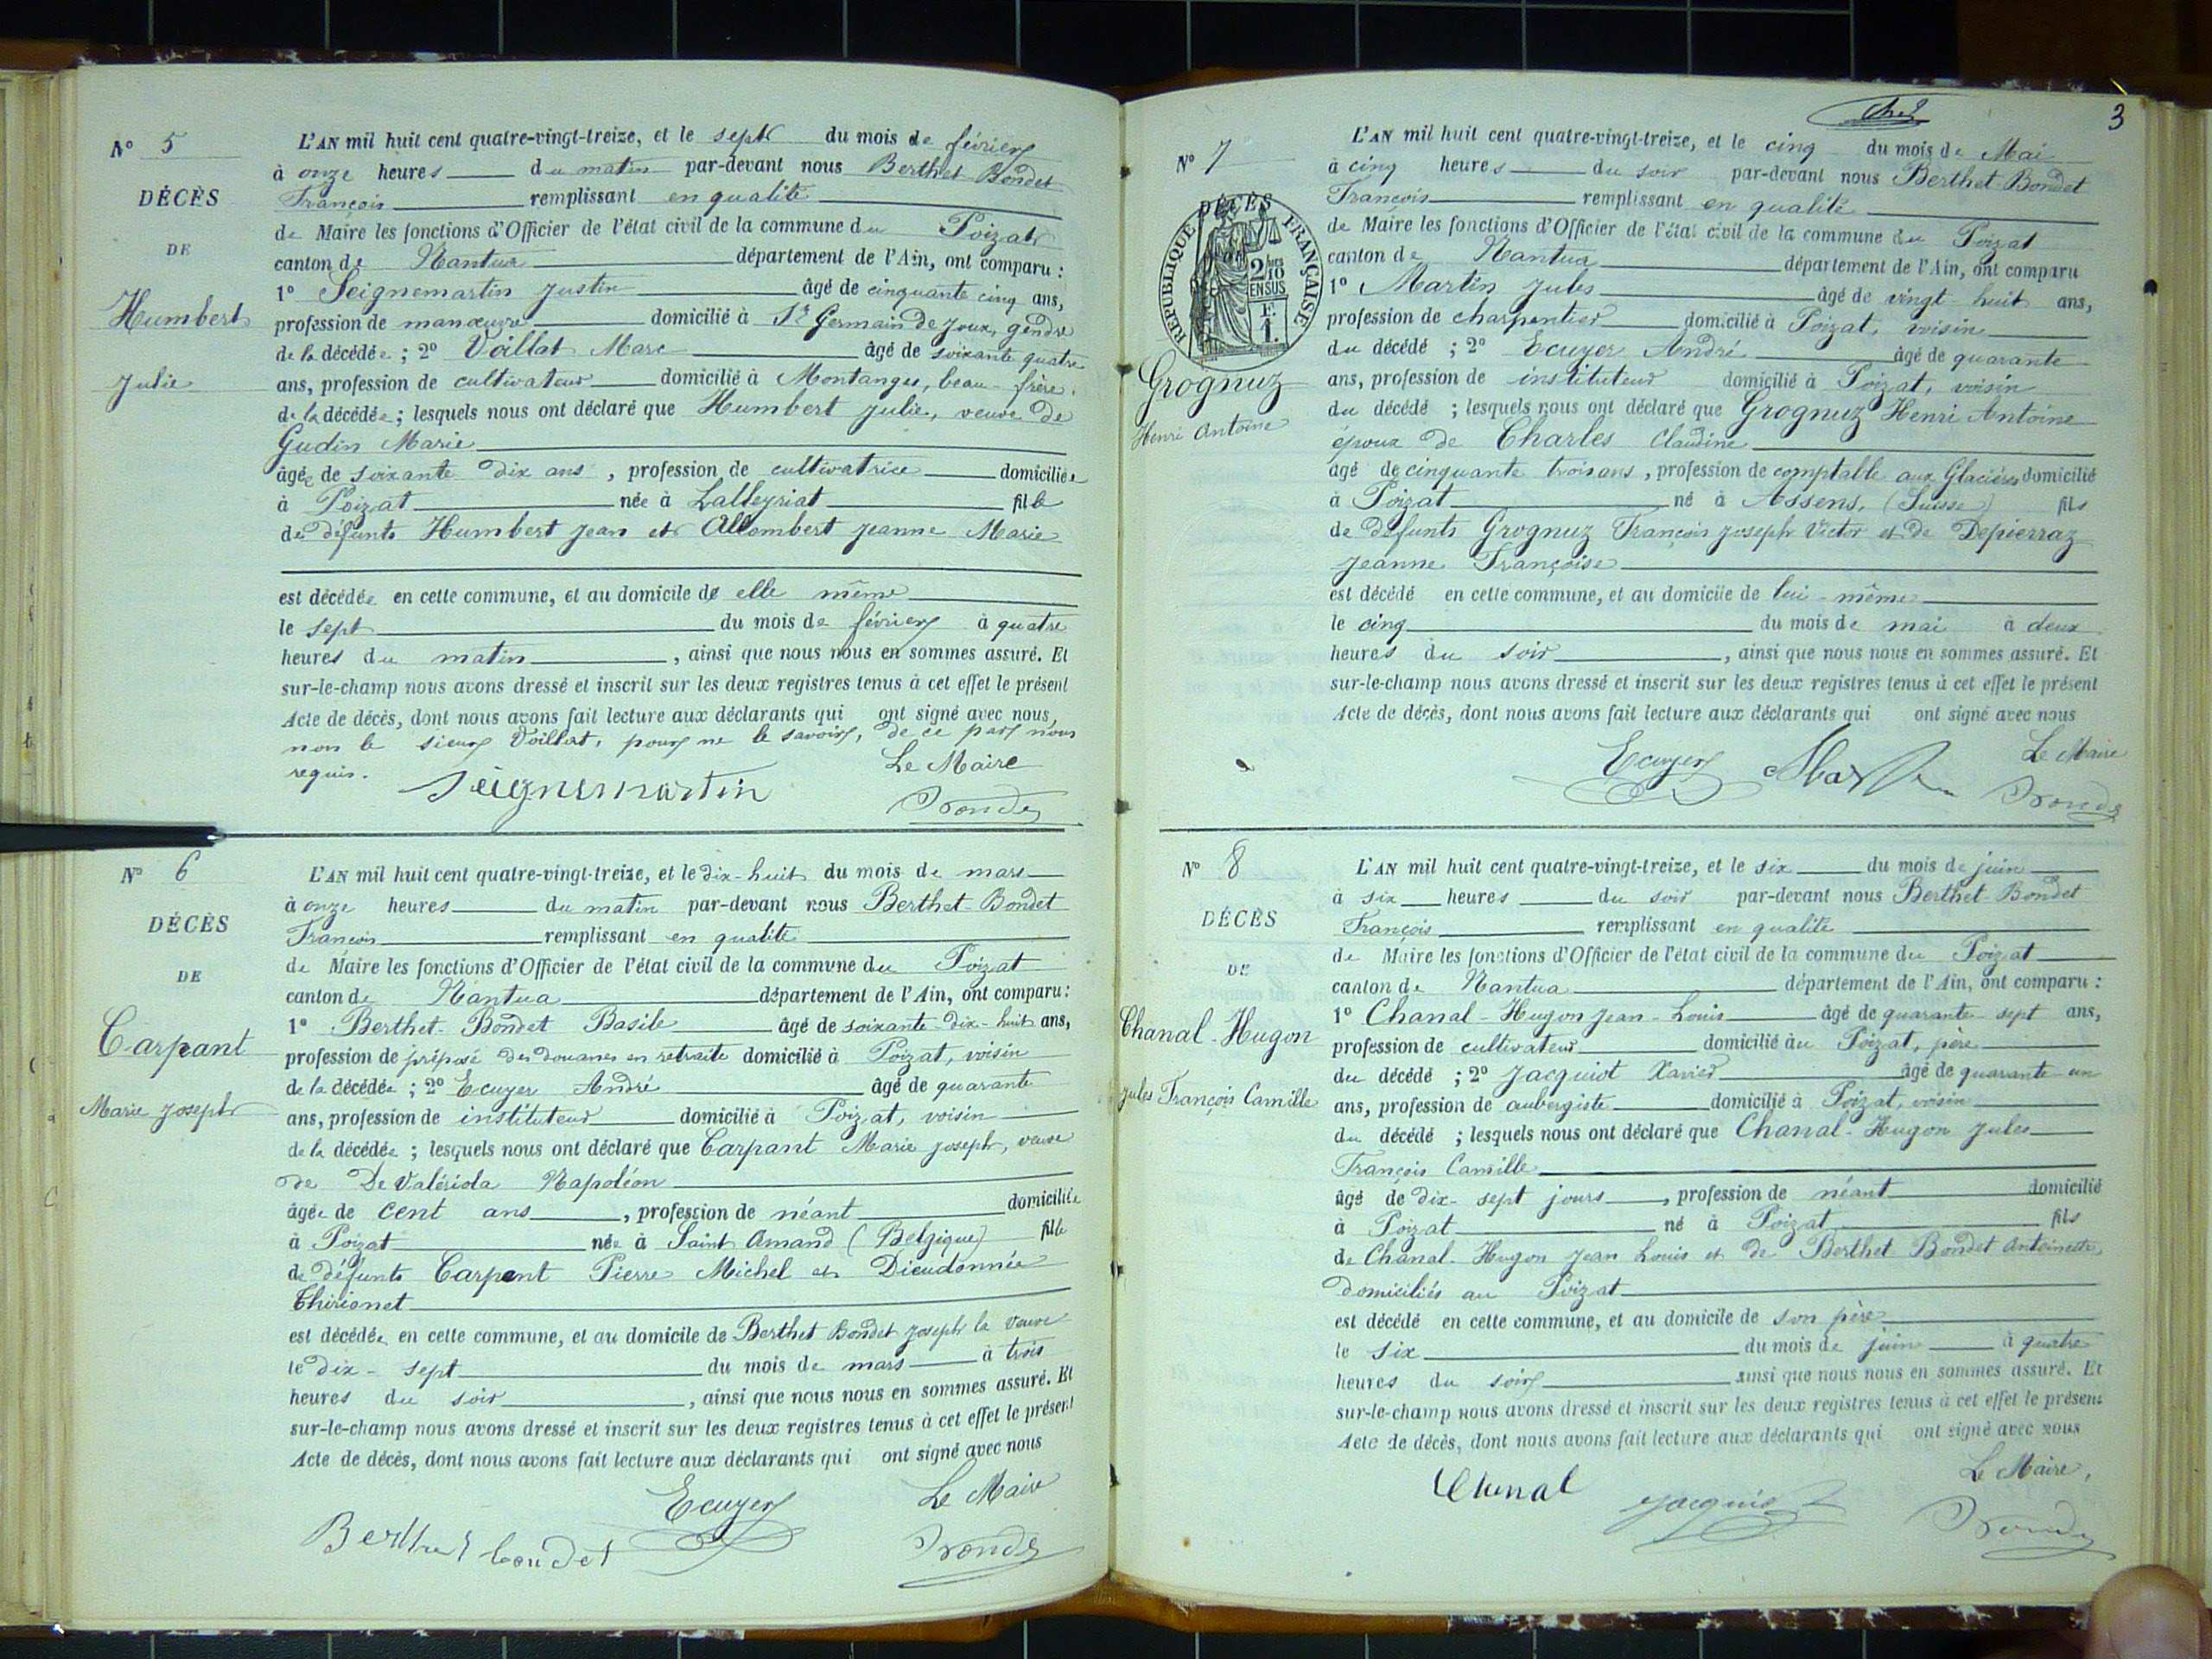 N° 5
DÉCÈS
DE
Humbert
Julie
L'AN mil huit cent quatre-vingt-treize, et le sept du mois de février
à onze heures du matin par-devant nous Berthet Bondet
François remplissant en qualité
de Maire les fonctions d'Officier de l'état civil de la commune du Poizat
canton de Nantua département de l'Ain, ont comparu :
1° Seignemartin Justin âgé de cinquante cinq ans,
profession de manœuvre domicilié à St Germain de Joux, gendre
de la décédée ; 2° Vaillat Marc âgé de soixante quatre
ans, profession de cultivateur domicilié à Montanges, beau-frère
de la décédée ; lesquels nous ont déclaré que Humbert Julie, veuve de
Gudin Marie
âgée de soixante dix ans, profession de cultivatrice domiciliée
à Poizat née à Lalleyriat fille
de défunts Humbert Jean et Allombert Jeanne Marie
est décédée en cette commune, et au domicile de elle même
le sept du mois de février à quatre
heures du matin, ainsi que nous nous en sommes assuré. Et
sur-le-champ nous avons dressé et inscrit sur les deux registres tenus à cet effet le présent
Acte de décès, dont nous avons fait lecture aux déclarants qui ont signé avec nous,
non le sieur Vaillat, pour ne le savoir, de ce par nous
requis.
Le Maire
Seignemartin
N° 6
DÉCÈS
DE
Carpant
Marie Joseph
L'AN mil huit cent quatre-vingt-treize, et le dix-huit du mois de mars
à onze heures du matin par-devant nous Berthet-Bondet
François remplissant en qualité
de Maire les fonctions d'Officier de l'état civil de la commune du Poizat
canton de Nantua département de l'Ain, ont comparu :
1° Berthet-Bondet Basile âgé de soixante-dix-huit ans,
profession de préposé des douanes en retraite domicilié à Poizat, voisin
de la décédée ; 2° Ecuyer André âgé de quarante
ans, profession de instituteur domicilié à Poizat, voisin
de la décédée ; lesquels nous ont déclaré que Carpant Marie Joseph, veuve
de De Valériola Napoléon
âgée de cent ans, profession de néant domiciliée
à Poizat née à Saint Amand (Belgique) fille
de défunts Carpent Pierre Michel et Dieudonnée
Thirionet
est décédée en cette commune, et au domicile de Berthet Bondet Joseph la veuve
le dix-sept du mois de mars à trois
heures du soir, ainsi que nous nous en sommes assuré. Et
sur-le-champ nous avons dressé et inscrit sur les deux registres tenus à cet effet le présent
Acte de décès, dont nous avons fait lecture aux déclarants qui ont signé avec nous
Ecuyer
Le Maire
Berthet bondet
3
N° 7
DÉCÈS
RÉPUBLIQUE FRANÇAISE
2/10
EN SUS
1 F.
Grognuz
Henri Antoine
L'AN mil huit cent quatre-vingt-treize, et le cinq du mois de Mai
à cinq heures du soir par-devant nous Berthet Bondet
François remplissant en qualité
de Maire les fonctions d'Officier de l'état civil de la commune du Poizat
canton de Nantua département de l'Ain, ont comparu
1° Martin Jules âgé de vingt huit ans,
profession de charpentier domicilié à Poizat, voisin
du décédé ; 2° Ecuyer André âgé de quarante
ans, profession de instituteur domicilié à Poizat, voisin
du décédé ; lesquels nous ont déclaré que Grognuz Henri Antoine
époux de Charles Claudine
âgé de cinquante trois ans, profession de comptable aux Glacières domicilié
à Poizat né à Assens, (Suisse) fils
de défunts Grognuz François Joseph Victor et de Depierraz
Jeanne Françoise
est décédé en cette commune, et au domicile de lui-même
le cinq du mois de mai à deux
heures du soir, ainsi que nous nous en sommes assuré. Et
sur-le-champ nous avons dressé et inscrit sur les deux registres tenus à cet effet le présent
Acte de décès, dont nous avons fait lecture aux déclarants qui ont signé avec nous
Ecuyer
Le Maire
N° 8
DÉCÈS
DE
Chanal-Hugon
Jules François Camille
L'AN mil huit cent quatre-vingt-treize, et le six du mois de juin
à six heures du soir par-devant nous Berthet-Bondet
François remplissant en qualité
de Maire les fonctions d'Officier de l'état civil de la commune du Poizat
canton de Nantua département de l'Ain, ont comparu :
1° Chanal-Hugon Jean-Louis âgé de quarante-sept ans,
profession de cultivateur domicilié au Poizat, père
du décédé ; 2° Jacquiot Xavier âgé de quarante-un
ans, profession de aubergiste domicilié à Poizat, voisin
du décédé ; lesquels nous ont déclaré que Chanal-Hugon Jules
François Camille
âgé de dix-sept jours, profession de néant domicilié
à Poizat né à Poizat fils
de Chanal-Hugon Jean Louis et de Berthet Bondet Antoinette,
domiciliés au Poizat
est décédé en cette commune, et au domicile de son père
le six du mois de juin à quatre
heures du soir ainsi que nous nous en sommes assuré. Et
sur-le-champ nous avons dressé et inscrit sur les deux registres tenus à cet effet le présent
Acte de décès, dont nous avons fait lecture aux déclarants qui ont signé avec nous
Le Maire,
Chanal